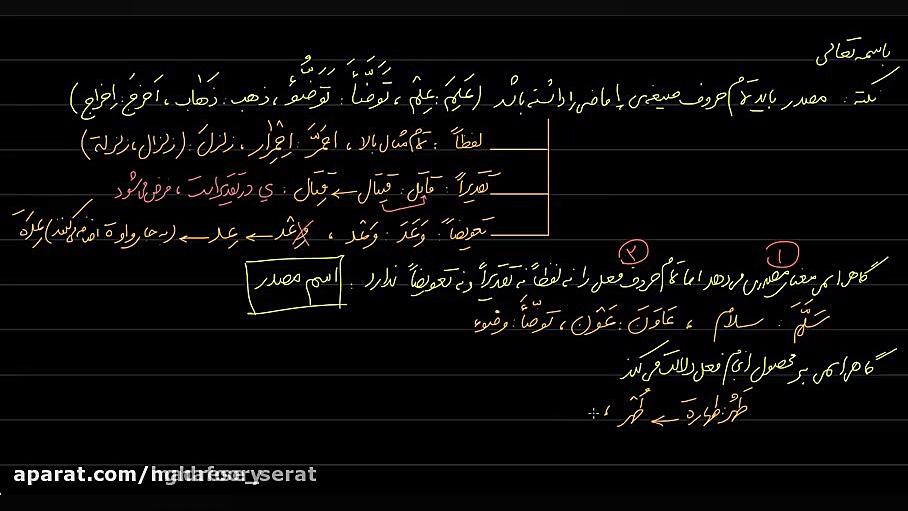 باسمه تعالی
نکته: مصدر باید تمام حروف صیغه‌ی ۱ ماضی را داشته باشد (عَلِمَ: عِلْم، تَوَضَّأَ: تَوَضُّؤ، ذهب: ذَهاب، أخرَجَ: إخراج)
لفظاً: تمام مثال بالا، احمَرَّ: اِحْمِرار، زلزلَ: (زلزال، زلزلة)
تقدیراً: قاتَلَ: قیتال ← قِتال: ي در تقدیر است، فرض می‌شود
تعویضاً: وَعَدَ: وَعْد، وِعْد ← عِد ← (به جا و او ة اضافه می‌کنند) عِدَة
۱ ۲
گاهی اسمی معنای مصدری می‌دهد اما تمام حروف فعل را نه لفظاً نه تقدیراً و نه تعویضاً ندارد: اسم مصدر
سَلَّمَ: سلام، عَاوَنَ: عَوْن، تَوَضَّأَ: وضوء
گاهی اسمی بر محصول انجام فعل دلالت می‌کند
طَهُرَ: طهارة ← طُهْر،
aparat.com/